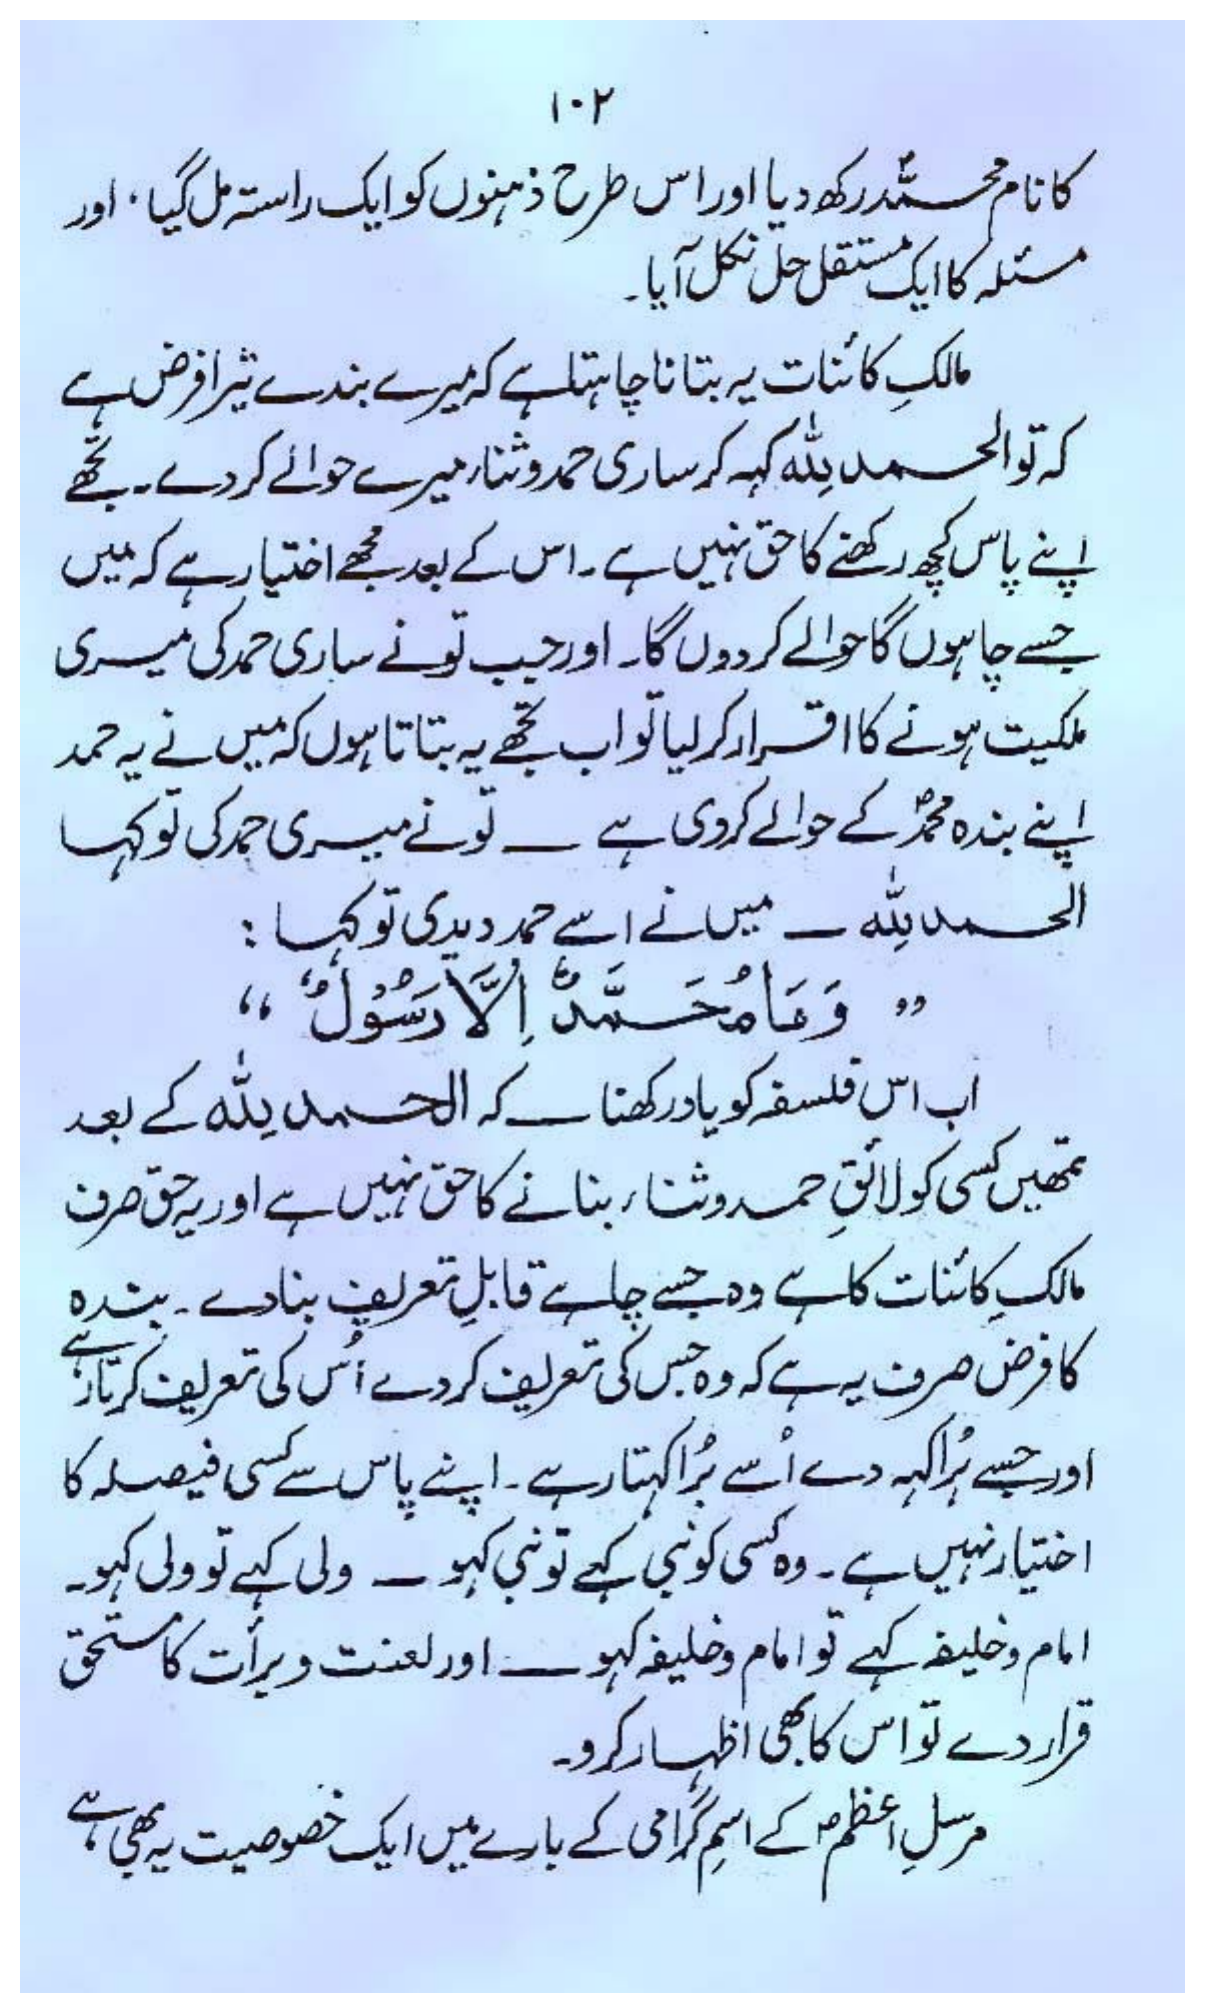 ۱۰۲
کا نام محمدؐ رکھ دیا اور اس طرح ذہنوں کو ایک راستہ مل گیا، اور
مسئلہ کا ایک مستقل حل نکل آیا۔
مالکِ کائنات یہ بتانا چاہتا ہے کہ میرے بندے تیرا فرض ہے
کہ تو الحمد للہ کہہ کر ساری حمد و ثناء میرے حوالے کر دے۔ تجھے
اپنے پاس کچھ رکھنے کا حق نہیں ہے۔ اس کے بعد مجھے اختیار ہے کہ میں
جسے چاہوں گا حوالے کر دوں گا۔ اور جب تو نے ساری حمد کی میری
ملکیت ہونے کا اقرار کر لیا تو اب تجھے یہ بتاتا ہوں کہ میں نے یہ حمد
اپنے بندہ محمدؐ کے حوالے کر دی ہے ــ تو نے میری حمد کی تو کہا
الحمد للہ ــ میں نے اسے حمد دیدی تو کہا :
” وَمَا مُحَمَّدٌ اِلَّا رَسُوْلٌ “
اب اس فلسفہ کو یاد رکھنا ــ کہ الحمد للہ کے بعد
تمھیں کسی کو لائقِ حمد و ثناء بنانے کا حق نہیں ہے اور یہ حق صرف
مالکِ کائنات کا ہے وہ جسے چاہے قابلِ تعریف بنا دے۔ بندہ
کا فرض صرف یہ ہے کہ وہ جس کی تعریف کر دے اُس کی تعریف کرتا رہے
اور جسے بُرا کہہ دے اُسے بُرا کہتا رہے۔ اپنے پاس سے کسی فیصلہ کا
اختیار نہیں ہے۔ وہ کسی کو نبی کہے تو نبی کہو ــ ولی کہے تو ولی کہو۔
امام و خلیفہ کہے تو امام و خلیفہ کہو ــ اور لعنت و برأت کا مستحق
قرار دے تو اس کا بھی اظہار کرو۔
مرسلِ اعظمؐ کے اسمِ گرامی کے بارے میں ایک خصوصیت یہ بھی ہے